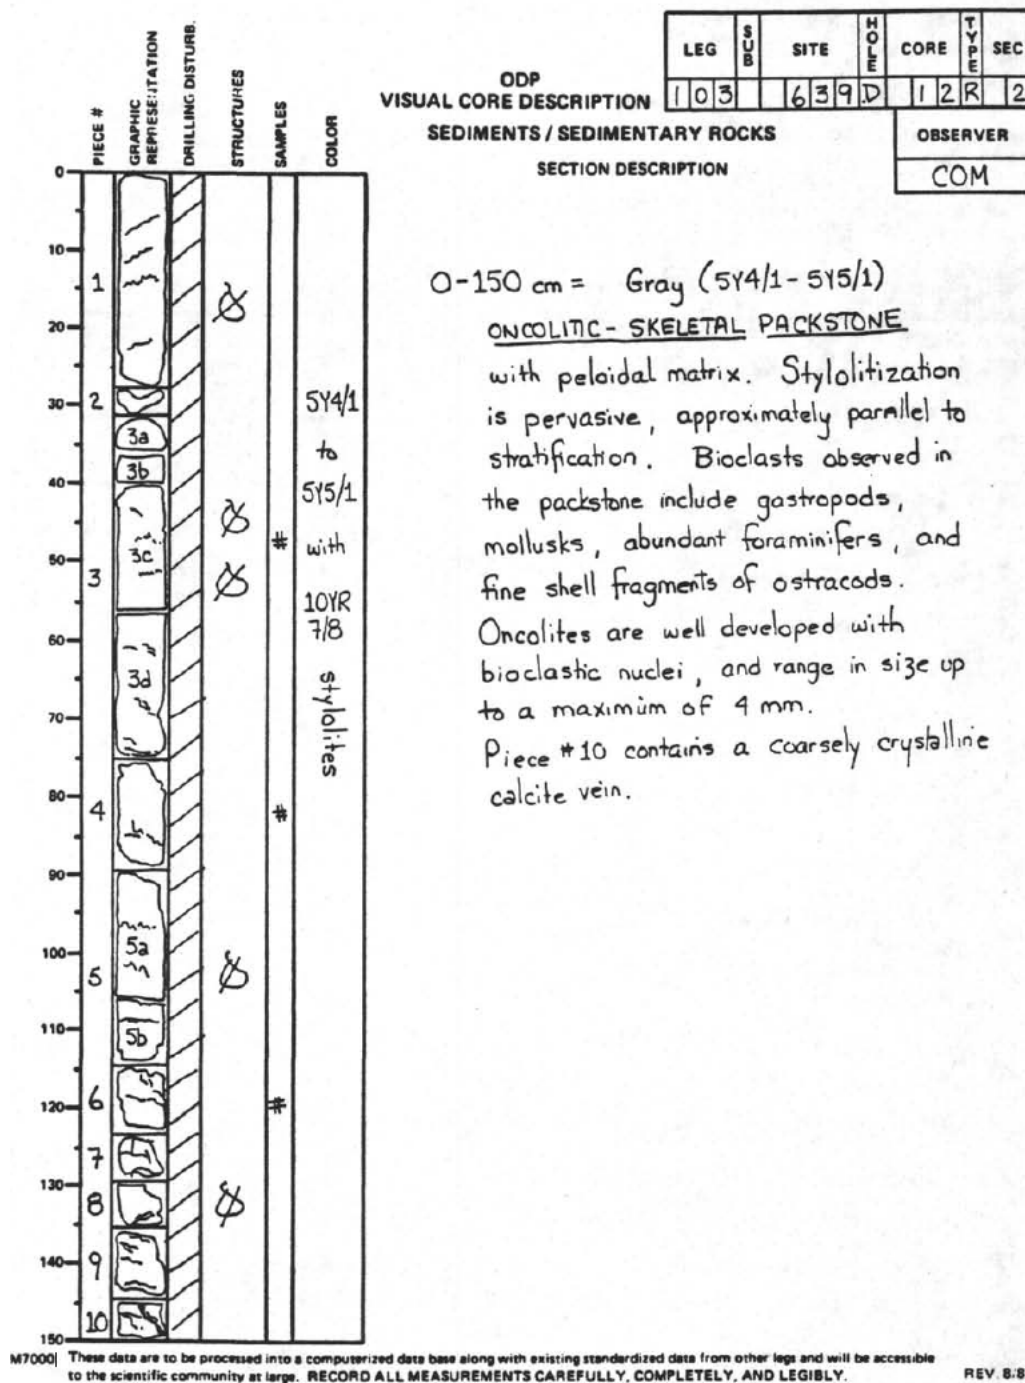 LEG SUB SITE HOLE CORE TYPE SEC
103 639 D 12 R 2
ODP
VISUAL CORE DESCRIPTION
SEDIMENTS / SEDIMENTARY ROCKS
SECTION DESCRIPTION
OBSERVER
COM
PIECE #
GRAPHIC
REPRESENTATION
DRILLING DISTURB.
STRUCTURES
SAMPLES
COLOR
0
10
20
30
40
50
60
70
80
90
100
110
120
130
140
150
1
2
3
4
5
6
7
8
9
10
3a
3b
3c
3d
5a
5b
#
#
#
5Y4/1
to
5Y5/1
with
10YR
7/8
stylolites
0-150 cm = Gray (5Y4/1 - 5Y5/1)
ONCOLITIC - SKELETAL PACKSTONE
with peloidal matrix. Stylolitization
is pervasive, approximately parallel to
stratification. Bioclasts observed in
the packstone include gastropods,
mollusks, abundant foraminifers, and
fine shell fragments of ostracods.
Oncolites are well developed with
bioclastic nuclei, and range in size up
to a maximum of 4 mm.
Piece #10 contains a coarsely crystalline
calcite vein.
M7000 These data are to be processed into a computerized data base along with existing standardized data from other legs and will be accessible
to the scientific community at large. RECORD ALL MEASUREMENTS CAREFULLY, COMPLETELY, AND LEGIBLY. REV. 8/8